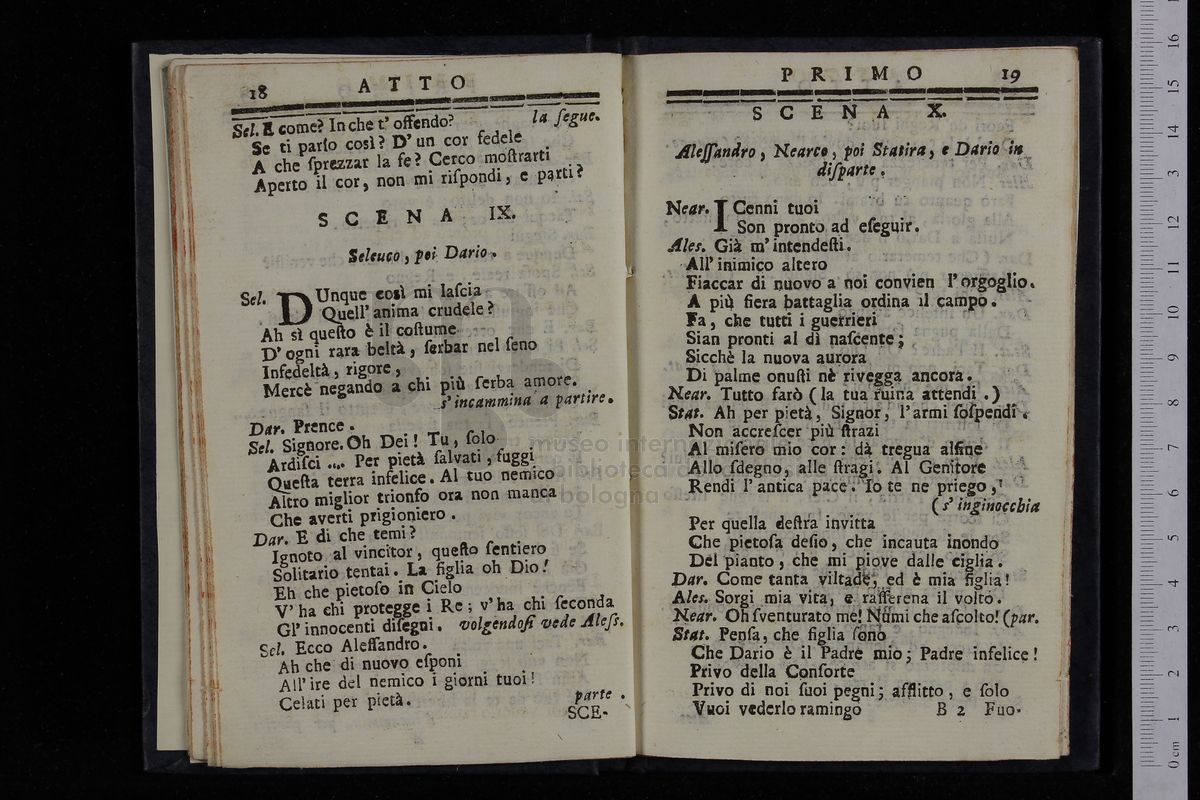 18 ATTO
Sel. E come? In che t' offendo? la ſegue.
Se ti parlo così? D' un cor fedele
A che ſprezzar la fe? Cerco moſtrarti
Aperto il cor, non mi riſpondi, e parti?
SCENA IX.
Seleuco, poi Dario.
Sel. DUnque così mi laſcia
Quell' anima crudele?
Ah sì queſto è il coſtume
D' ogni rara beltà, ſerbar nel ſeno
Infedeltà, rigore,
Mercè negando a chi più ſerba amore.
s' incammina a partire.
Dar. Prence.
Sel. Signore. Oh Dei! Tu, ſolo
Ardiſci .... Per pietà ſalvati, fuggi
Queſta terra infelice. Al tuo nemico
Altro miglior trionfo ora non manca
Che averti prigioniero.
Dar. E di che temi?
Ignoto al vincitor, queſto ſentiero
Solitario tentai. La figlia oh Dio!
Eh che pietoſo in Cielo
V' ha chi protegge i Re; v' ha chi ſeconda
Gl' innocenti diſegni. volgendoſi vede Aleſs.
Sel. Ecco Aleſſandro.
Ah che di nuovo eſponi
All' ire del nemico i giorni tuoi!
Celati per pietà. parte.
SCE-
PRIMO 19
SCENA X.
Aleſſandro, Nearco, poi Statira, e Dario in
diſparte.
Near. I Cenni tuoi
Son pronto ad eſeguir.
Ales. Già m' intendeſti.
All' inimico altero
Fiaccar di nuovo a noi convien l' orgoglio.
A più fiera battaglia ordina il campo.
Fa, che tutti i guerrieri
Sian pronti al dì naſcente;
Sicchè la nuova aurora
Di palme onuſti nè rivegga ancora.
Near. Tutto farò (la tua ruina attendi.)
Stat. Ah per pietà, Signor, l' armi ſoſpendi.
Non accreſcer più ſtrazi
Al miſero mio cor: dà tregua alfine
Allo ſdegno, alle ſtragi. Al Genitore
Rendi l' antica pace. Io te ne priego,
(s' inginocchia
Per quella deſtra invitta
Che pietoſa deſio, che incauta inondo
Del pianto, che mi piove dalle ciglia.
Dar. Come tanta viltade, ed è mia figlia!
Ales. Sorgi mia vita, e raſſerena il volto.
Near. Oh ſventurato me! Numi che aſcolto! (par.
Stat. Penſa, che figlia ſono
Che Dario è il Padre mio; Padre infelice!
Privo della Conſorte
Privo di noi ſuoi pegni; afflitto, e ſolo
Vuoi vederlo ramingo
B 2 Fuo-